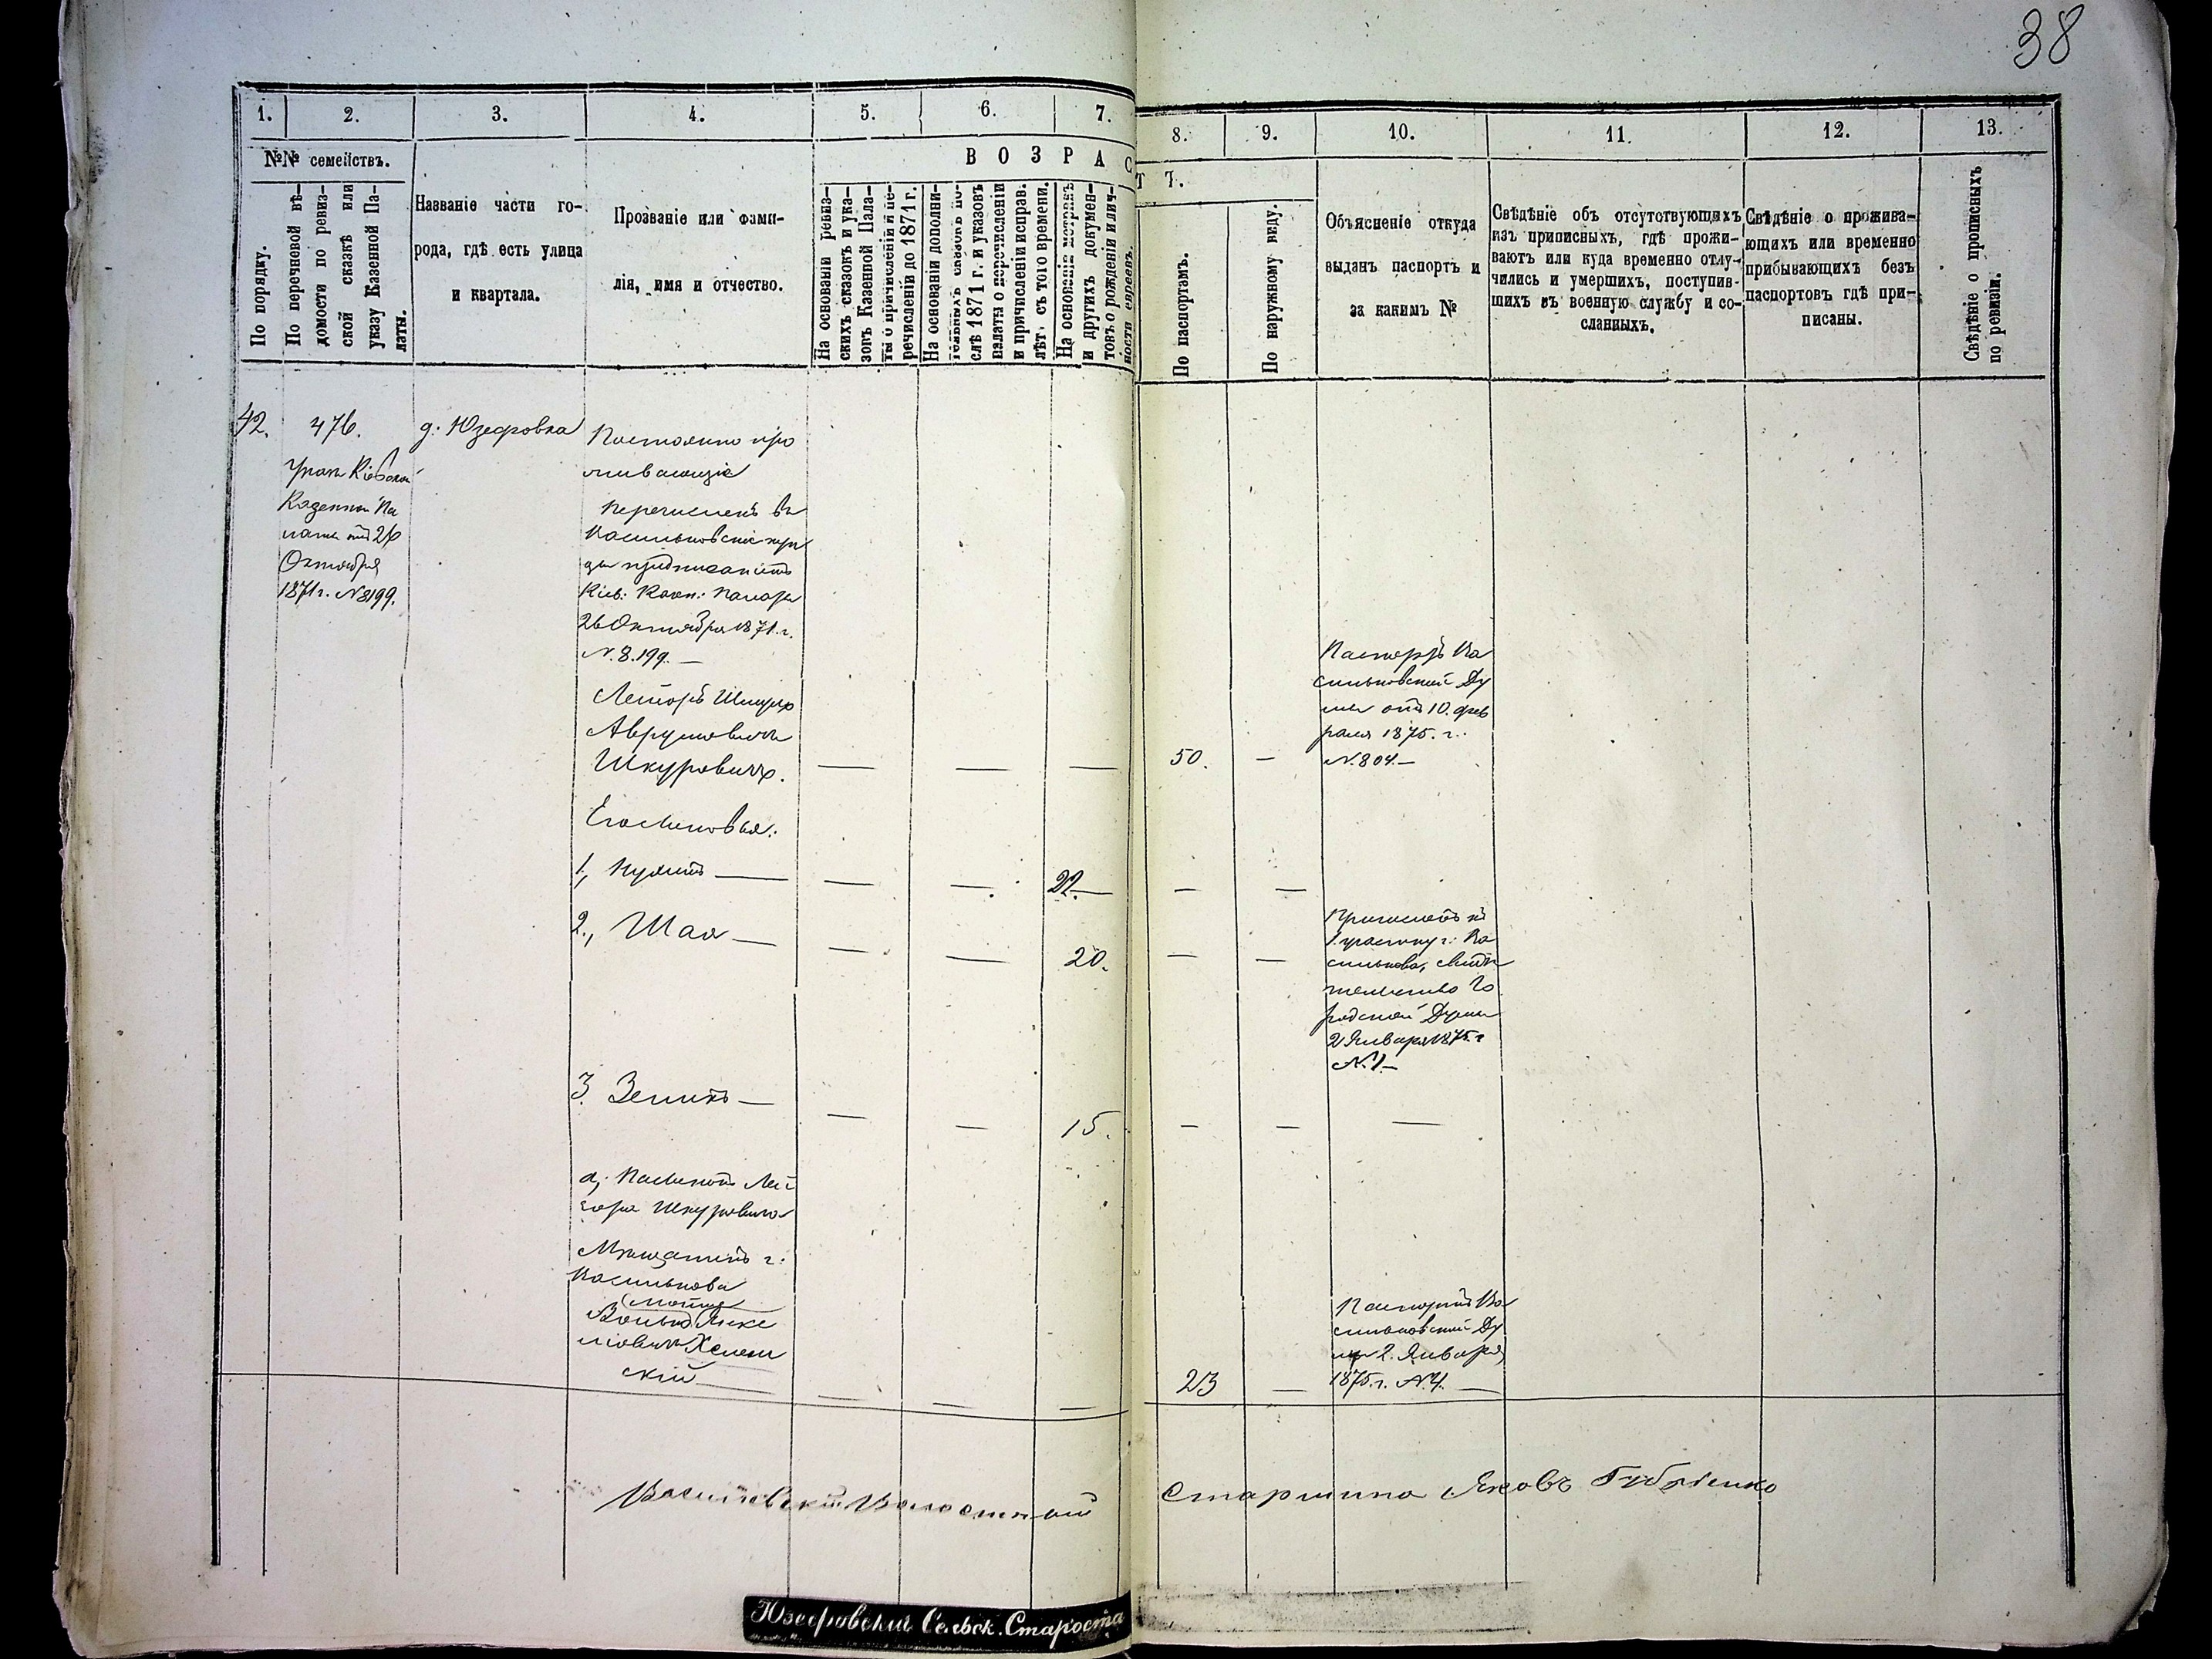 38
1. 2. 3. 4. 5. 6. 7. 8. 9. 10. 11. 12. 13.
№№ семействъ.
ВОЗРАСТЪ.
По порядку.
По перечневой вѣ-
домости по ревиз-
ской сказкѣ или
указу Казенной Па-
латы.
Названіе части го-
рода, гдѣ есть улица
и квартала.
Прозваніе или фами-
лія, имя и отчество.
На основаніи ревиз-
скихъ сказокъ и ука-
зовъ Казенной Пала-
ты о причисленіи и пе-
речисленій до 1871 г.
На основаніи дополни-
тельныхъ списковъ по-
слѣ 1871 г. и указовъ
палаты о перечисленіи
и причисленіи исправ.
лѣтъ съ того времени.
На основаніи метрикъ
и другихъ докумен-
товъ о рожденіи и лич-
ности евреевъ.
По паспортамъ.
По наружному виду.
Объясненіе откуда
выданъ паспортъ и
за какимъ №
Свѣдѣніе объ отсутствующихъ
изъ приписныхъ, гдѣ прожи-
ваютъ или куда временно отлу-
чились и умершихъ, поступив-
шихъ въ военную службу и со-
сланныхъ.
Свѣдѣніе о прожива-
ющихъ или временно
прибывающихъ безъ
паспортовъ гдѣ при-
писаны.
Свѣдѣніе о прописныхъ
по ревизіи.
42. 476. д: Юзефовка
Указъ Кіевской
Казенной Па
латы отъ 26
Октября
1871 г. № 8199.
Постоянно про
живающіе
Перечисленъ въ
Васильковскіе куп
цы
Кіев: Казен: Палаты
26 Октября 1871. г.
№. 8.199. —
Лейзоръ
Аврумовичъ
Шкуровичъ. — — — 50. —
Паспортъ Ва
сильковской Ду
мы отъ 10. фев
раля 1875. г.
№. 804. —
Его сыновья:
1., — — — 22. — —
2., Шая — — — 20. — —
Причисленъ къ
1 участку г: Ва
силькова, свидѣ
тельство Го
родской Думы
2 Января 1875. г
№. 1. —
3. Зельикъ — — — 15. — — —
а, Лей
зора Шкуровича
Мѣщанинъ г:
Василькова
Хелем
скій — — — — 23 —
Паспортъ Ва
сильковской Ду
мы 2. Января
1875. г. №. 4. —
Волостной Старшина Яковъ
Юзефовскій Сельск. Староста